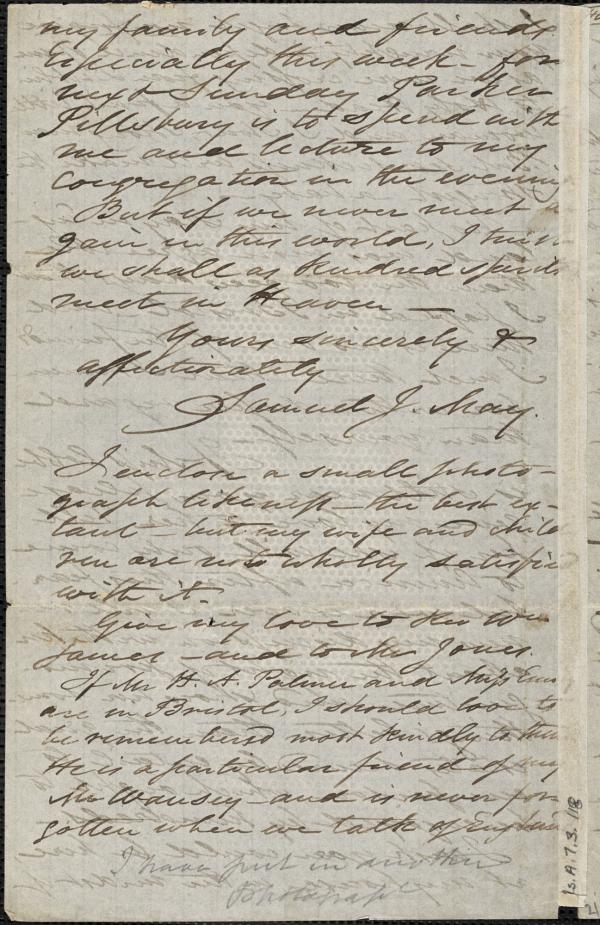 my family and friends
Especially this week - for
next Sunday Parker
Pillsbury is to spend with
me and lecture to my
congregation in the evening
But if we never meet a
gain in this world, I trust
we shall as kindred spirits
meet in Heaven —
Yours sincerely &
affectionately
Samuel J. May.
I enclose a small photo-
graph likeness - the best ex-
tant - but my wife and child
ren are not wholly satisfied
with it.
Give my love to Rev Wm
James - and to Mr Jones.
If Mr H. A. Palmer and Miss
are in Bristol, I should love to
be remembered most kindly to them
He is a particular friend of my
Mr Wansey - and is never for
gotten when we talk of England
I have put in another
Photograph